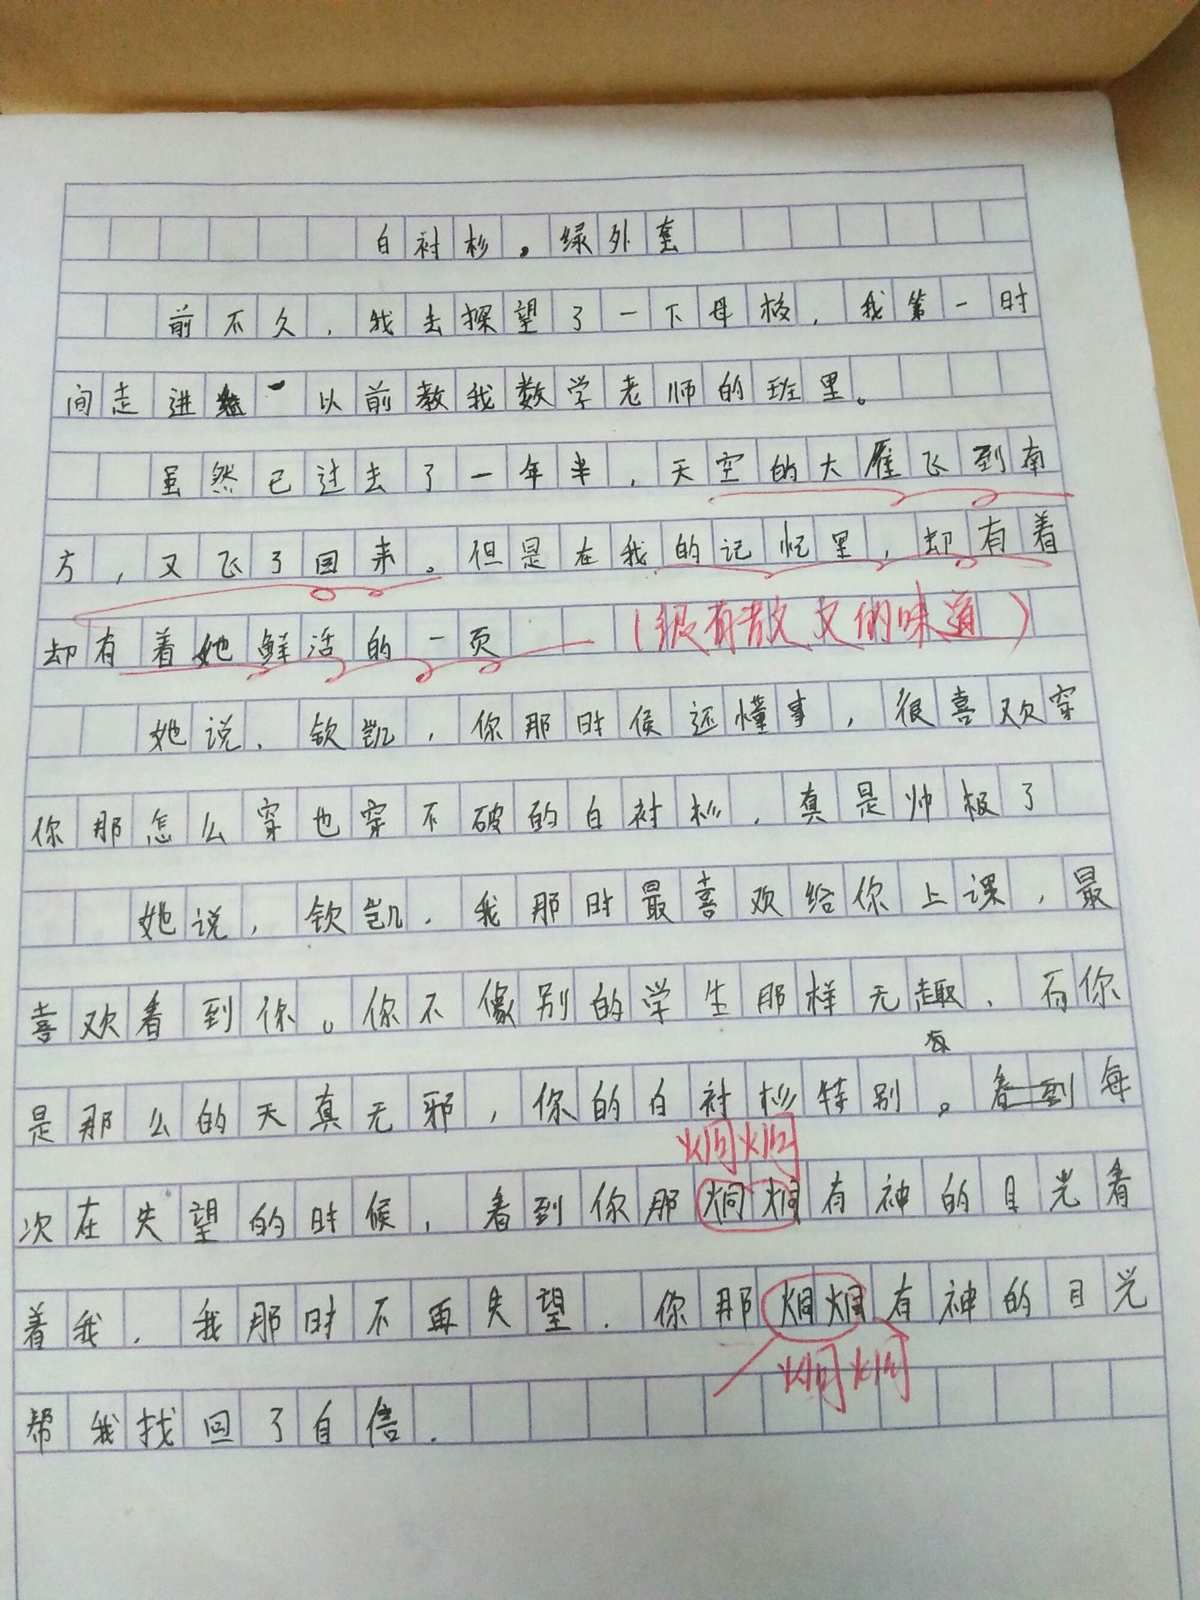 白衬衫。绿外套
前不久，我去探望了一下母校，我第一时
间走进以前教我数学老师的班里。
虽然已过去了一年半，天空的大雁飞到南
方，又飞了回来。但是在我的记忆里，却有着
却有着她鲜活的一页
（很有散文的味道）
她说、钦凯，你那时候还懂事，很喜欢穿
你那怎么穿也穿不破的白衬衫，真是帅极了
她说，钦凯．我那时最喜欢给你上课，最
喜欢看到你。你不像别的学生那样无趣、而你
是那么的天真无邪，你的白衬衫特别。每
炯炯
次在失望的时候，看到你那炯炯有神的目光看
着我．我那时不再失望．你那炯炯有神的目光
炯炯
帮我找回了自信．